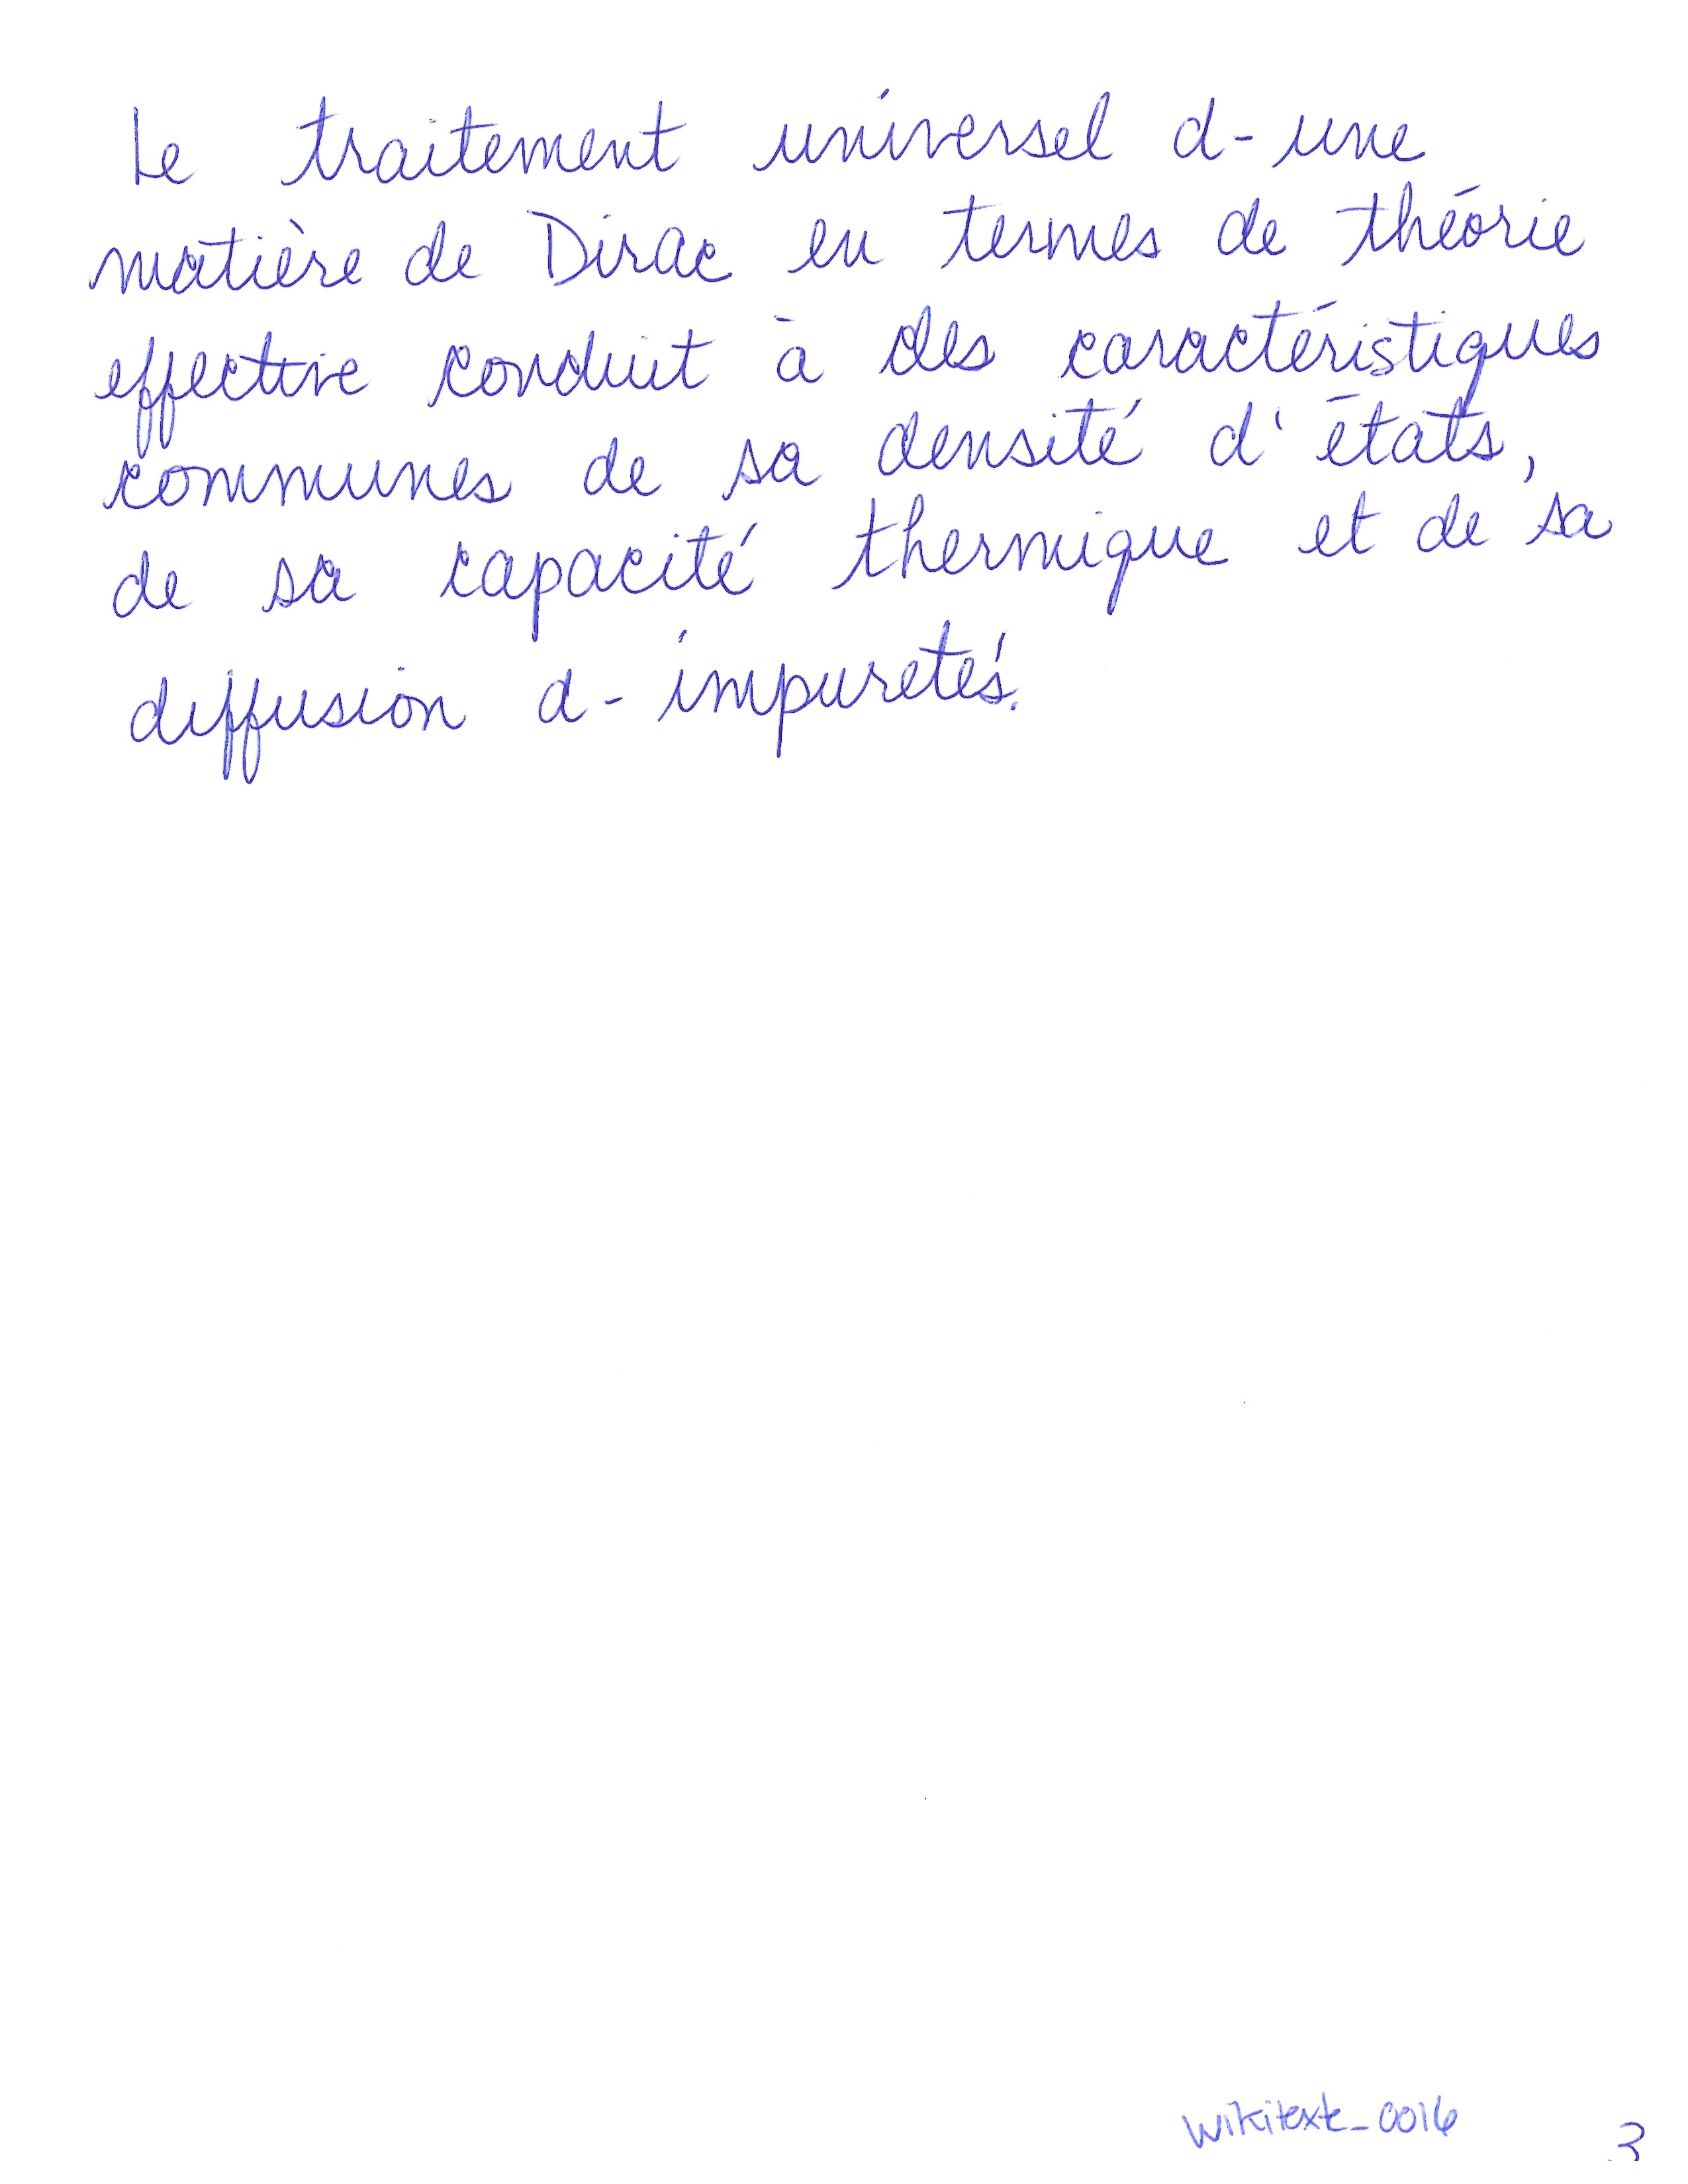 Le traitement universel d-une
matière de Dirac en termes de théorie
effective conduit à des caractéristiques
communes de sa densité d'états,
de sa capacité thermique et de sa
diffusion d-impuretés.
wikitexte_0016
3